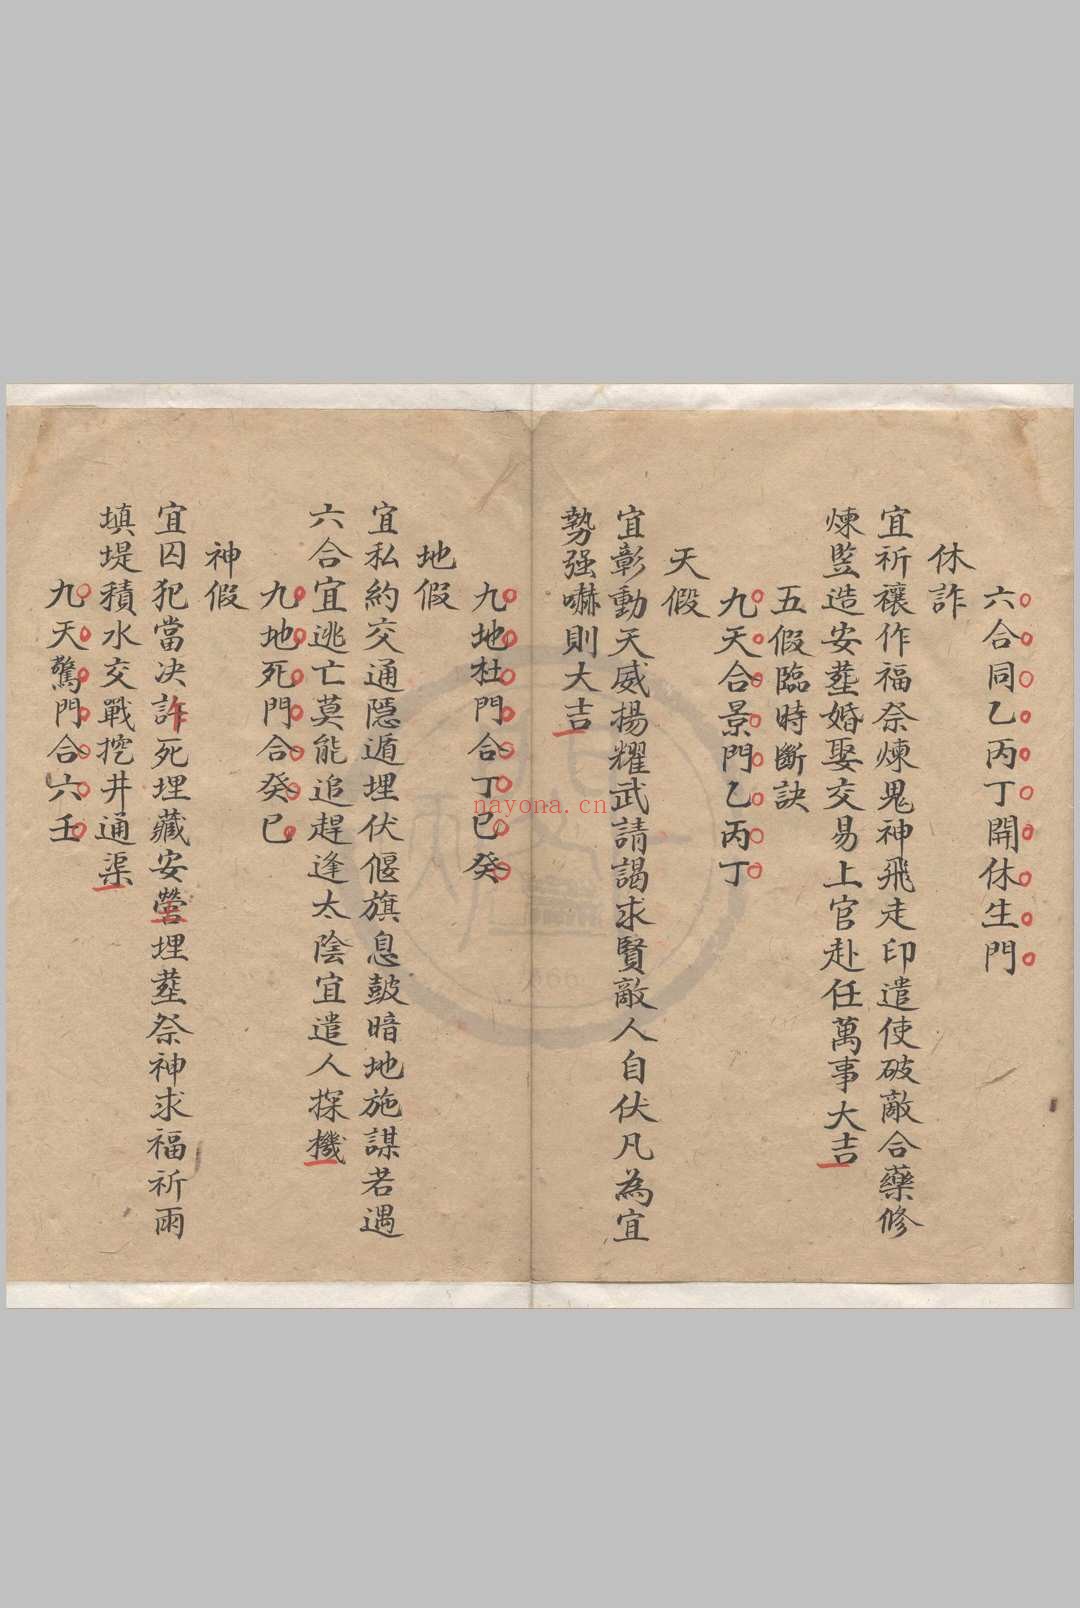 六合同乙丙丁開休生門
休詐
宜祈禳作福祭煉鬼神飛走印遣使破敵合藥修
煉竪造安塟婚娶交易上官赴任萬事大吉
五假臨時斷訣
九天合景門乙丙丁
天假
宜彰動天威揚耀武請謁求賢敵人自伏凡為宜
勢强嚇則大吉
九地杜門合丁已癸
地假
宜私約交通隠遁埋伏偃旗息鼓暗地施謀若遇
六合宜逃亡莫能追趕逢太陰宜遣人探機
九地死門合癸已
神假
宜囚犯當决許死埋藏安營埋塟祭神求福祈雨
填堤積水交戰挖井通渠
九天驚門合六壬
nayona.cn